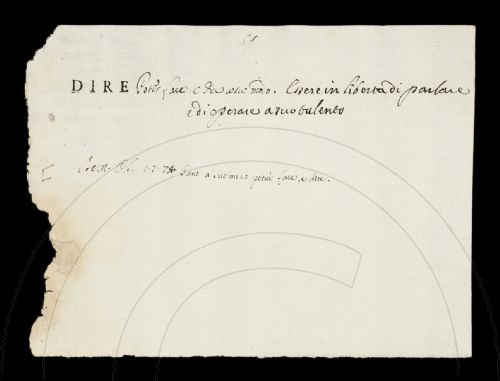 54
DIRE Poter fare e dire a suo modo. Essere in libertà di parlare
e di operare a suo talento
fare a suo modo potea fare, e dire.